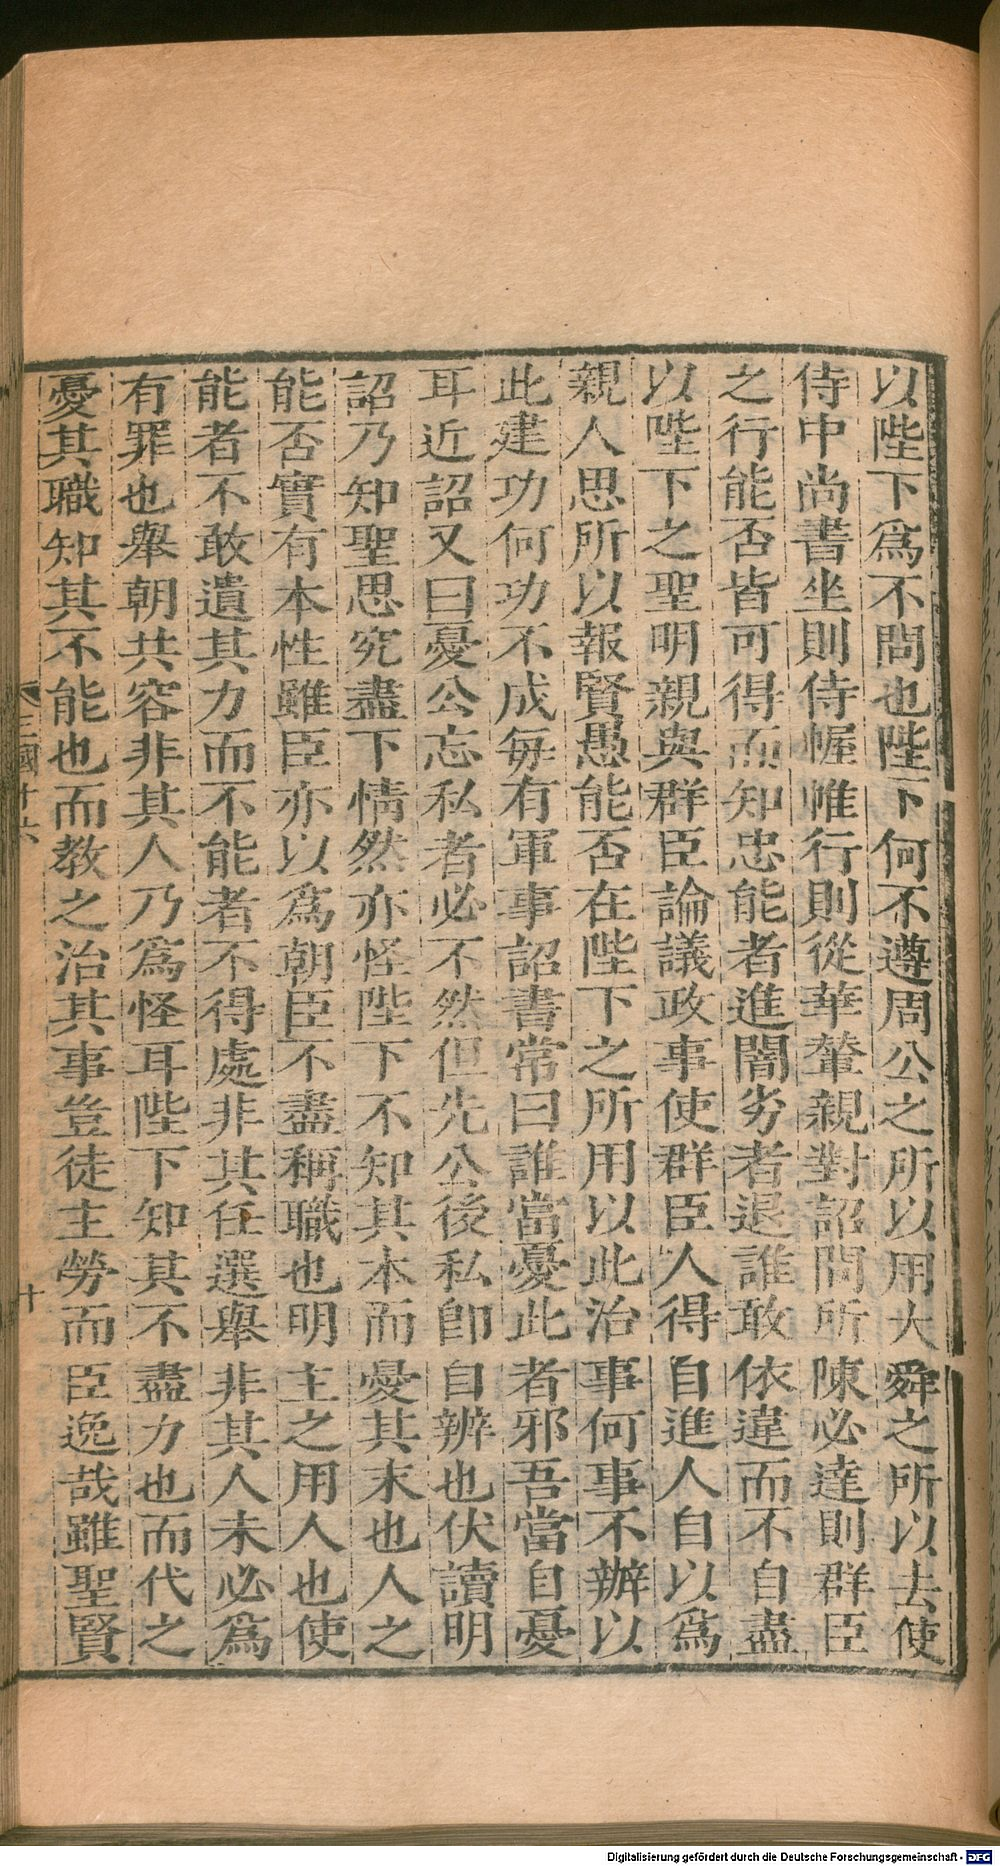 以陛下爲不問也陛下何不遵周公之所以用大舜之所以去使
侍中尚書坐則侍幄帷行則從華輦親對詔問所陳必達則群臣
之行能否皆可得而知忠能者進闇劣者退誰敢依違而不自盡
以陛下之聖明親與群臣論議政事使群臣人得自進人自以爲
親人思所以報賢愚能否在陛下之所用以此治事何事不辦以
此建功何功不成每有軍事詔書常曰誰當憂此者邪吾當自憂
耳近詔又曰憂公忘私者必不然但先公後私卽自辨也伏讀明
詔乃知聖思究盡下情然亦怪陛下不知其本而憂其末也人之
能否實有本性雖臣亦以爲朝臣不盡稱職也明主之用人也使
能者不敢遺其力而不能者不得處非其任選舉非其人未必爲
有罪也舉朝共容非其人乃爲怪耳陛下知其不盡力也而代之
憂其職知其不能也而教之治其事豈徒主勞而臣逸哉雖聖賢
三國十六
十
Digitalisierung gefördert durch die Deutsche Forschungsgemeinschaft - DFG